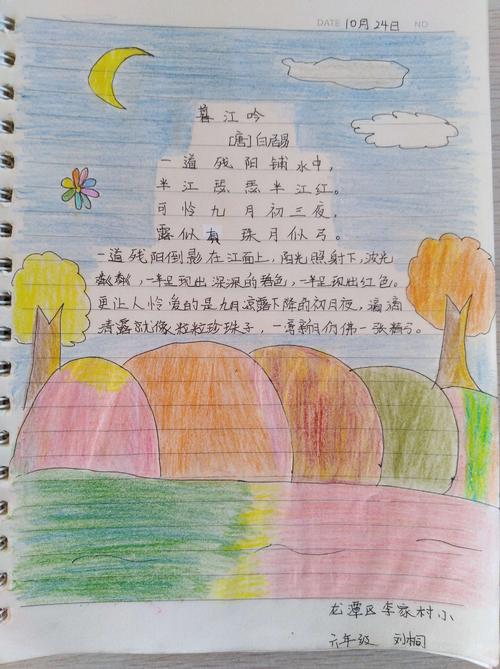 DATE 10月24日 NO
暮江吟
[唐]白居易
一道残阳铺水中,
半江瑟瑟半江红。
可怜九月初三夜,
露似真珠月似弓。
一道残阳倒影在江面上,阳光照射下,波光
粼粼,一半呈现出深深的碧色,一半呈现出红色。
更让人怜爱的是九月凉露下降的初月夜,滴滴
清露就像粒粒珍珠子,一弯新月仿佛一张
龙潭区李家村小
六年级 刘桐